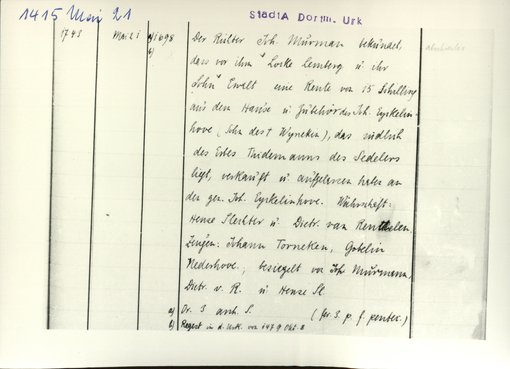 1415 Mai 21
StadtA Dortm. Urk
1743 Mai 21 a) 1698
b)
Der Richter Joh. Mürman bekundet,
dass vor ihm Locke Lemberg u. ihr
Sohn Ewalt eine Rente von 15 Schilling
aus dem Hause u. Zubehör des Joh. Eyckelin-
hove (Sohn des † Wyneken), das südlich
des Erbes Tidemanns des Sedelers
liegt, verkauft u. aufgelassen haben an
den gen. Joh. Eyckelinhove. Währschaft:
Hense Slechter u. Dietr. van Renthelen.
Zeugen: Johann Torneken, Goklin
Nederhove, besiegelt von Joh. Mürmann,
Dietr. v. R. u. Hense Sl.
a) Or. 3 anh. S. (fer. 3. p. f. pentec.)
b) Regest in d. Urk. von 1479 Okt. 8